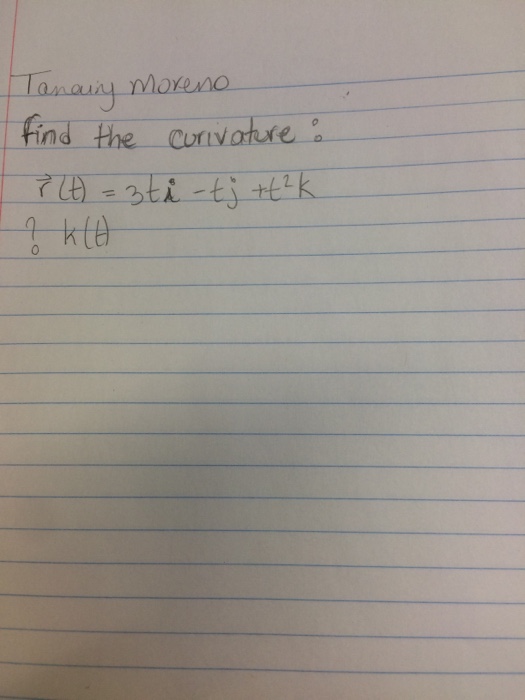 Tanauiy Moreno
find the curivature :
r⃗(t) = 3ti - tj + t²k
? k(t)